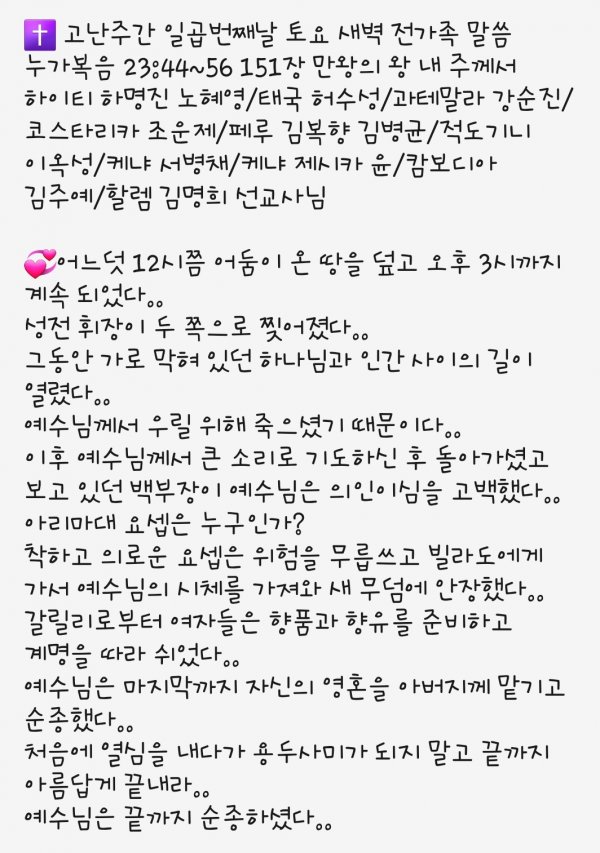 ✝️ 고난주간 일곱번째날 토요 새벽 전가족 말씀
누가복음 23:44~56 151장 만왕의 왕 내 주께서
하이티 하명진 노혜영/태국 허수성/과테말라 강순진/
코스타리카 조운제/페루 김복향 김병균/적도기니
이옥성/케냐 서병채/케냐 제시카 윤/캄보디아
김주예/할렘 김명희 선교사님
💞어느덧 12시쯤 어둠이 온 땅을 덮고 오후 3시까지
계속 되었다。。
성전 휘장이 두 쪽으로 찢어졌다。。
그동안 가로 막혀 있던 하나님과 인간 사이의 길이
열렸다。。
예수님께서 우릴 위해 죽으셨기 때문이다。。
이후 예수님께서 큰 소리로 기도하신 후 돌아가셨고
보고 있던 백부장이 예수님은 의인이심을 고백했다。。
아리마대 요셉은 누구인가?
착하고 의로운 요셉은 위험을 무릅쓰고 빌라도에게
가서 예수님의 시체를 가져와 새 무덤에 안장했다。。
갈릴리로부터 여자들은 향품과 향유를 준비하고
계명을 따라 쉬었다。。
예수님은 마지막까지 자신의 영혼을 아버지께 맡기고
순종했다。。
처음에 열심을 내다가 용두사미가 되지 말고 끝까지
아름답게 끝내라。。
예수님은 끝까지 순종하셨다。。